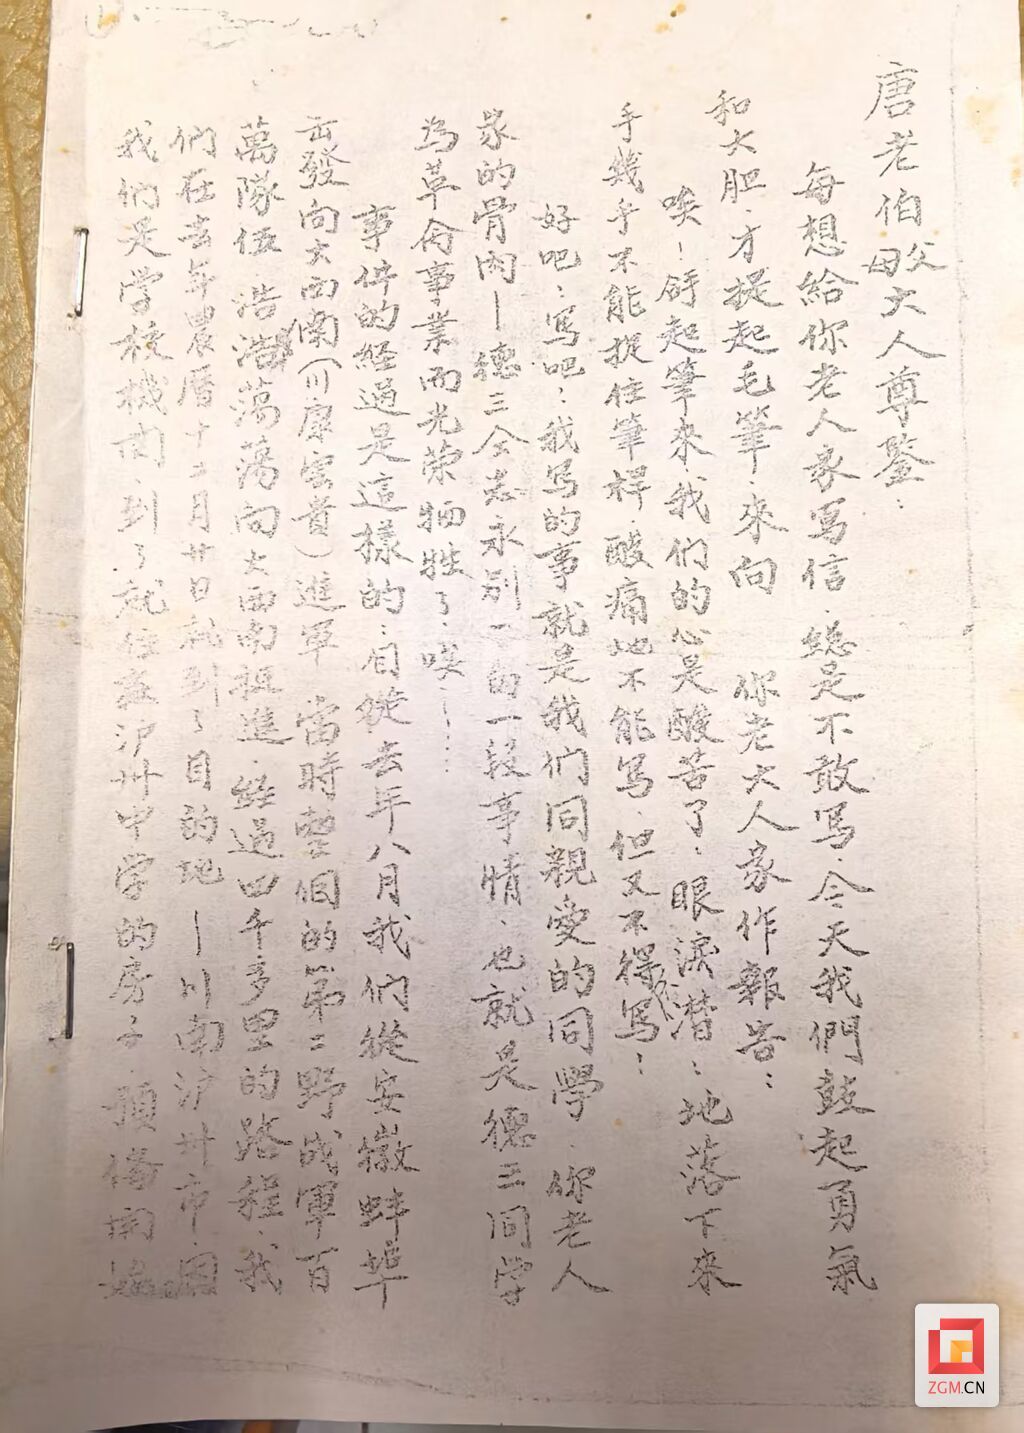 唐老伯父母大人尊鉴：
每想給你老人家写信．總是不敢写．今天我們鼓起勇氣
和大胆．才提起毛筆．來向 你老大人家作報告：
唉！舒起筆來．我们的心是酸苦了．眼淚潜：地落下來
手幾乎不能捉住筆桿．酸痛地不能写．但又不得不写：
好吧：写吧：我写的事就是我们同親爱的同學．你老人
家的骨肉—德三仝志永别一的一段事情．也就是德三同学
为革命事業而光荣牺牲了．唉！—…
事件的经過是這樣的：自從去年八月我们從安徽蚌埠
出發向大西南（川康雲貴）進軍 當時整個的第二野战軍百
萬隊伍．浩浩蕩蕩向大西南挺進．經過四千多里的路程．我
們在去年農曆十二月廿日就到了目的地—川南泸州市．因
我们是学校機関．到了就住在泸州中学的房子．預備開始
ZGM.CN